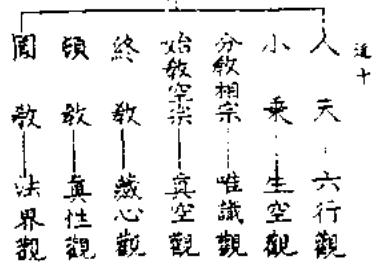 人天 六行觀
小乘 生空觀
分教相宗 唯識觀
始教空宗 眞空觀
終教 藏心觀
頓教 眞性觀
圓教 法界觀